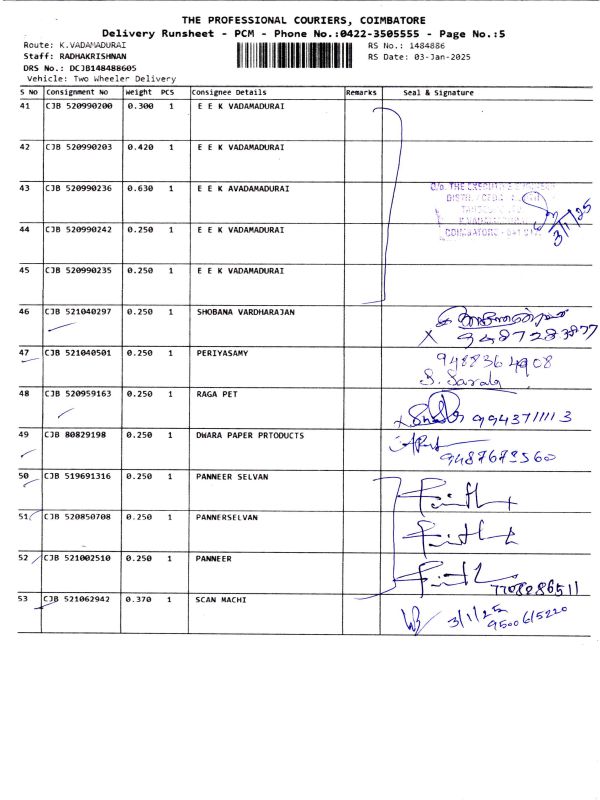 THE PROFESSIONAL COURIERS, COIMBATORE
Delivery Runsheet - PCM - Phone No.:0422-3505555 - Page No.:5
Route: K.VADAMADURAI RS No.: 1484886
Staff: RADHAKRISHNAN RS Date: 03-Jan-2025
DRS No.: DCJB148488605
Vehicle: Two Wheeler Delivery
S No Consignment No Weight PCS Consignee Details Remarks Seal & Signature
41 CJB 520990200 0.300 1 E E K VADAMADURAI
42 CJB 520990203 0.420 1 E E K VADAMADURAI
43 CJB 520990236 0.630 1 E E K AVADAMADURAI
O/o. THE EXECUTIVE ENGINEER
3/1/25
44 CJB 520990242 0.250 1 E E K VADAMADURAI
COIMBATORE
45 CJB 520990235 0.250 1 E E K VADAMADURAI
46 CJB 521040297 0.250 1 SHOBANA VARDHARAJAN
47 CJB 521040501 0.250 1 PERIYASAMY 9488364908
S. Sarala
48 CJB 520959163 0.250 1 RAGA PET
49 CJB 80829198 0.250 1 DWARA PAPER PRTODUCTS
50 CJB 519691316 0.250 1 PANNEER SELVAN
51 CJB 520850708 0.250 1 PANNERSELVAN
52 CJB 521002510 0.250 1 PANNEER
7708286511
53 CJB 521062942 0.370 1 SCAN MACHI
3/1/25
9500615220